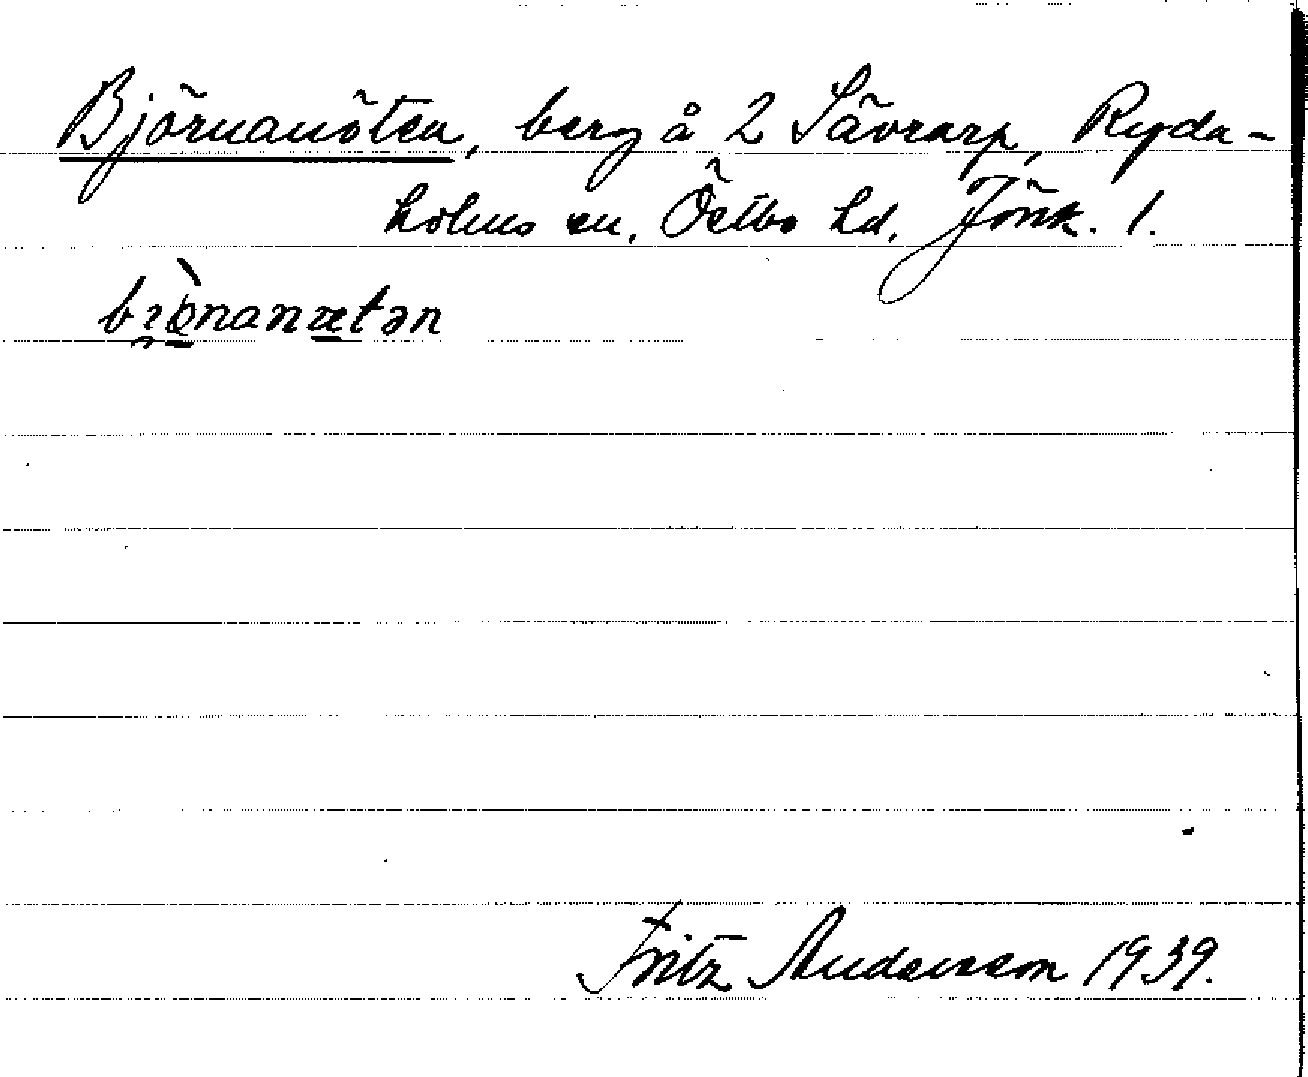 Björnanöten, berg å 2 Sävrarp, Ryda-
holms sn, Östbo hd, Jönk. l.
Fritz Andersson 1939.